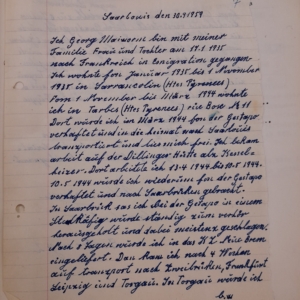 Saarlouis den 30.9.1959
Ich Georg Maiwerm bin mit meiner
Familie Frau und Tochter am 17.1.1935
nach Frankreich in Emigration gegangen
Ich wohnte fon Januar 1935 bis 1 November
1935 in Sarrancolin (Htes Pyrenees)
Vom 1 November bis März 1944 wohnte
ich in Tarbes (Htes Pyrenees) rue Bose № 11
Dort würde ich im März 1944 fon der Gestapo
verhaftet und in die heimat nach Saarlouis
transportiert und lies mich frei. Ich bekam
arbeit auf der Dillinger Hütte als Kessel
heizer. Dort arbeitete ich 13.4 1944 bis 10.5.1944.
10.5 1944 würde ich wiederum fon der Gestapo
verhaftet und nach Saarbrüken gebracht.
In Saarbrük sas ich Bei der Gestapo in einem
würde ständig zum verhör
herausgeholt und dabei meistens geschlagen.
Nach 8 Tagen würde ich in das K.Z. Neue Brem
eingeliefert. Dan kam ich nach 4 Wochen
auf transport nach Zweibrüken, Frankfürt
Leipzig und Torgau. In Torgau würde ich
b.w